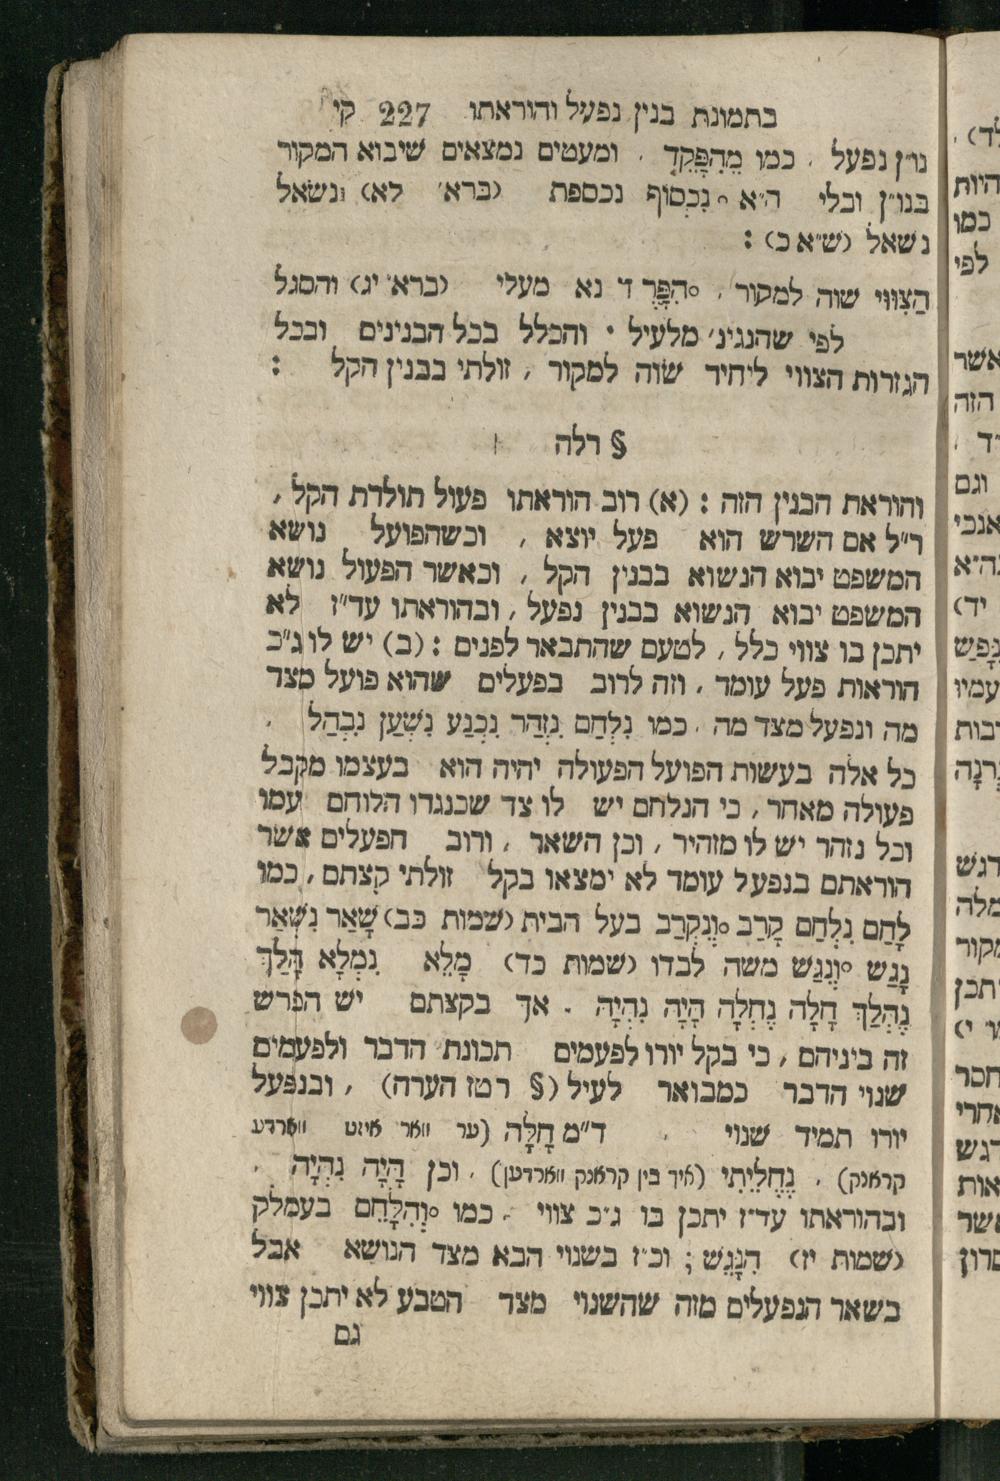 בתמונת בנין נפעל והוראתו 227 קי
נו״ן נפעל . כמו מֵהִפָּקֵד . ומעטים נמצאים שיבוא המקור
בנו״ן ובלי ה״א נִכְסוֹף נכספת (ברא׳ לא) נשאל
נשאל (ש״א כ) :
הַצִוּוּי שוה למקור , הִפָּרֶד נא מעלי (ברא׳ יג) והסגל
לפי שהנגינ׳ מלעיל . והכלל בכל הבנינים ובכל
הגזרות הצווי ליחיד שוה למקור , זולתי בבנין הקל :
§ רלה
והוראת הבנין הזה : (א) רוב הוראתו פעול תולדת הקל ,
ר״ל אם השרש הוא פעל יוצא , וכשהפועל נושא
המשפט יבוא הנשוא בבנין הקל , וכאשר הפעול נושא
המשפט יבוא הנשוא בבנין נפעל , ובהוראתו עד״ז לא
יתכן בו צווי כלל , לטעם שהתבאר לפנים : (ב) יש לו ג״כ
הוראות פעל עומד , וזה לרוב בפעלים שהוא פועל מצד
מה ונפעל מצד מה . כמו נִלְחַם נִזְהַר נִכְנַע נִשְׁעַן נִבְהַל .
כל אלה בעשות הפועל הפעולה יהיה הוא בעצמו מקבל
פעולה מאחר , כי הנלחם יש לו צד שכנגדו הלוחם עמו
וכל נזהר יש לו מזהיר , וכן השאר , ורוב הפעלים אשר
הוראתם בנפעל עומד לא ימצאו בקל זולתי קצתם , כמו
לָחַם נִלְחַם קָרַב וְנִקְרַב בעל הבית (שמות כב) שָׁאַר נִשְׁאַר
נָגַשׁ וְנִגַּשׁ משה לבדו (שמות כד) מָלֵא נִמְלָא הָלַךְ
נֶהְלַךְ חָלָה נֶחְלָה הָיָה נִהְיָה . אך בקצתם יש הפרש
זה ביניהם , כי בקל יורו לפעמים תכונת הדבר ולפעמים
שנוי הדבר כמבואר לעיל (§ רטז הערה) , ובנפעל
יורו תמיד שנוי . ד״מ חָלָה (ער וואר אונט ווארדע
קראנק) , נֶחֱלֵיתִי (איך בין קראנק ווארדען) , וכן הָיָה נִהְיָה .
ובהוראתו עד״ז יתכן בו ג״כ צווי , כמו וְהִלָּחֵם בעמלק
(שמות יז) הִנָּגֵשׁ ; וכ״ז בשנוי הבא מצד הנושא אבל
בשאר הנפעלים מזה שהשנוי מצד הטבע לא יתכן צווי
גם